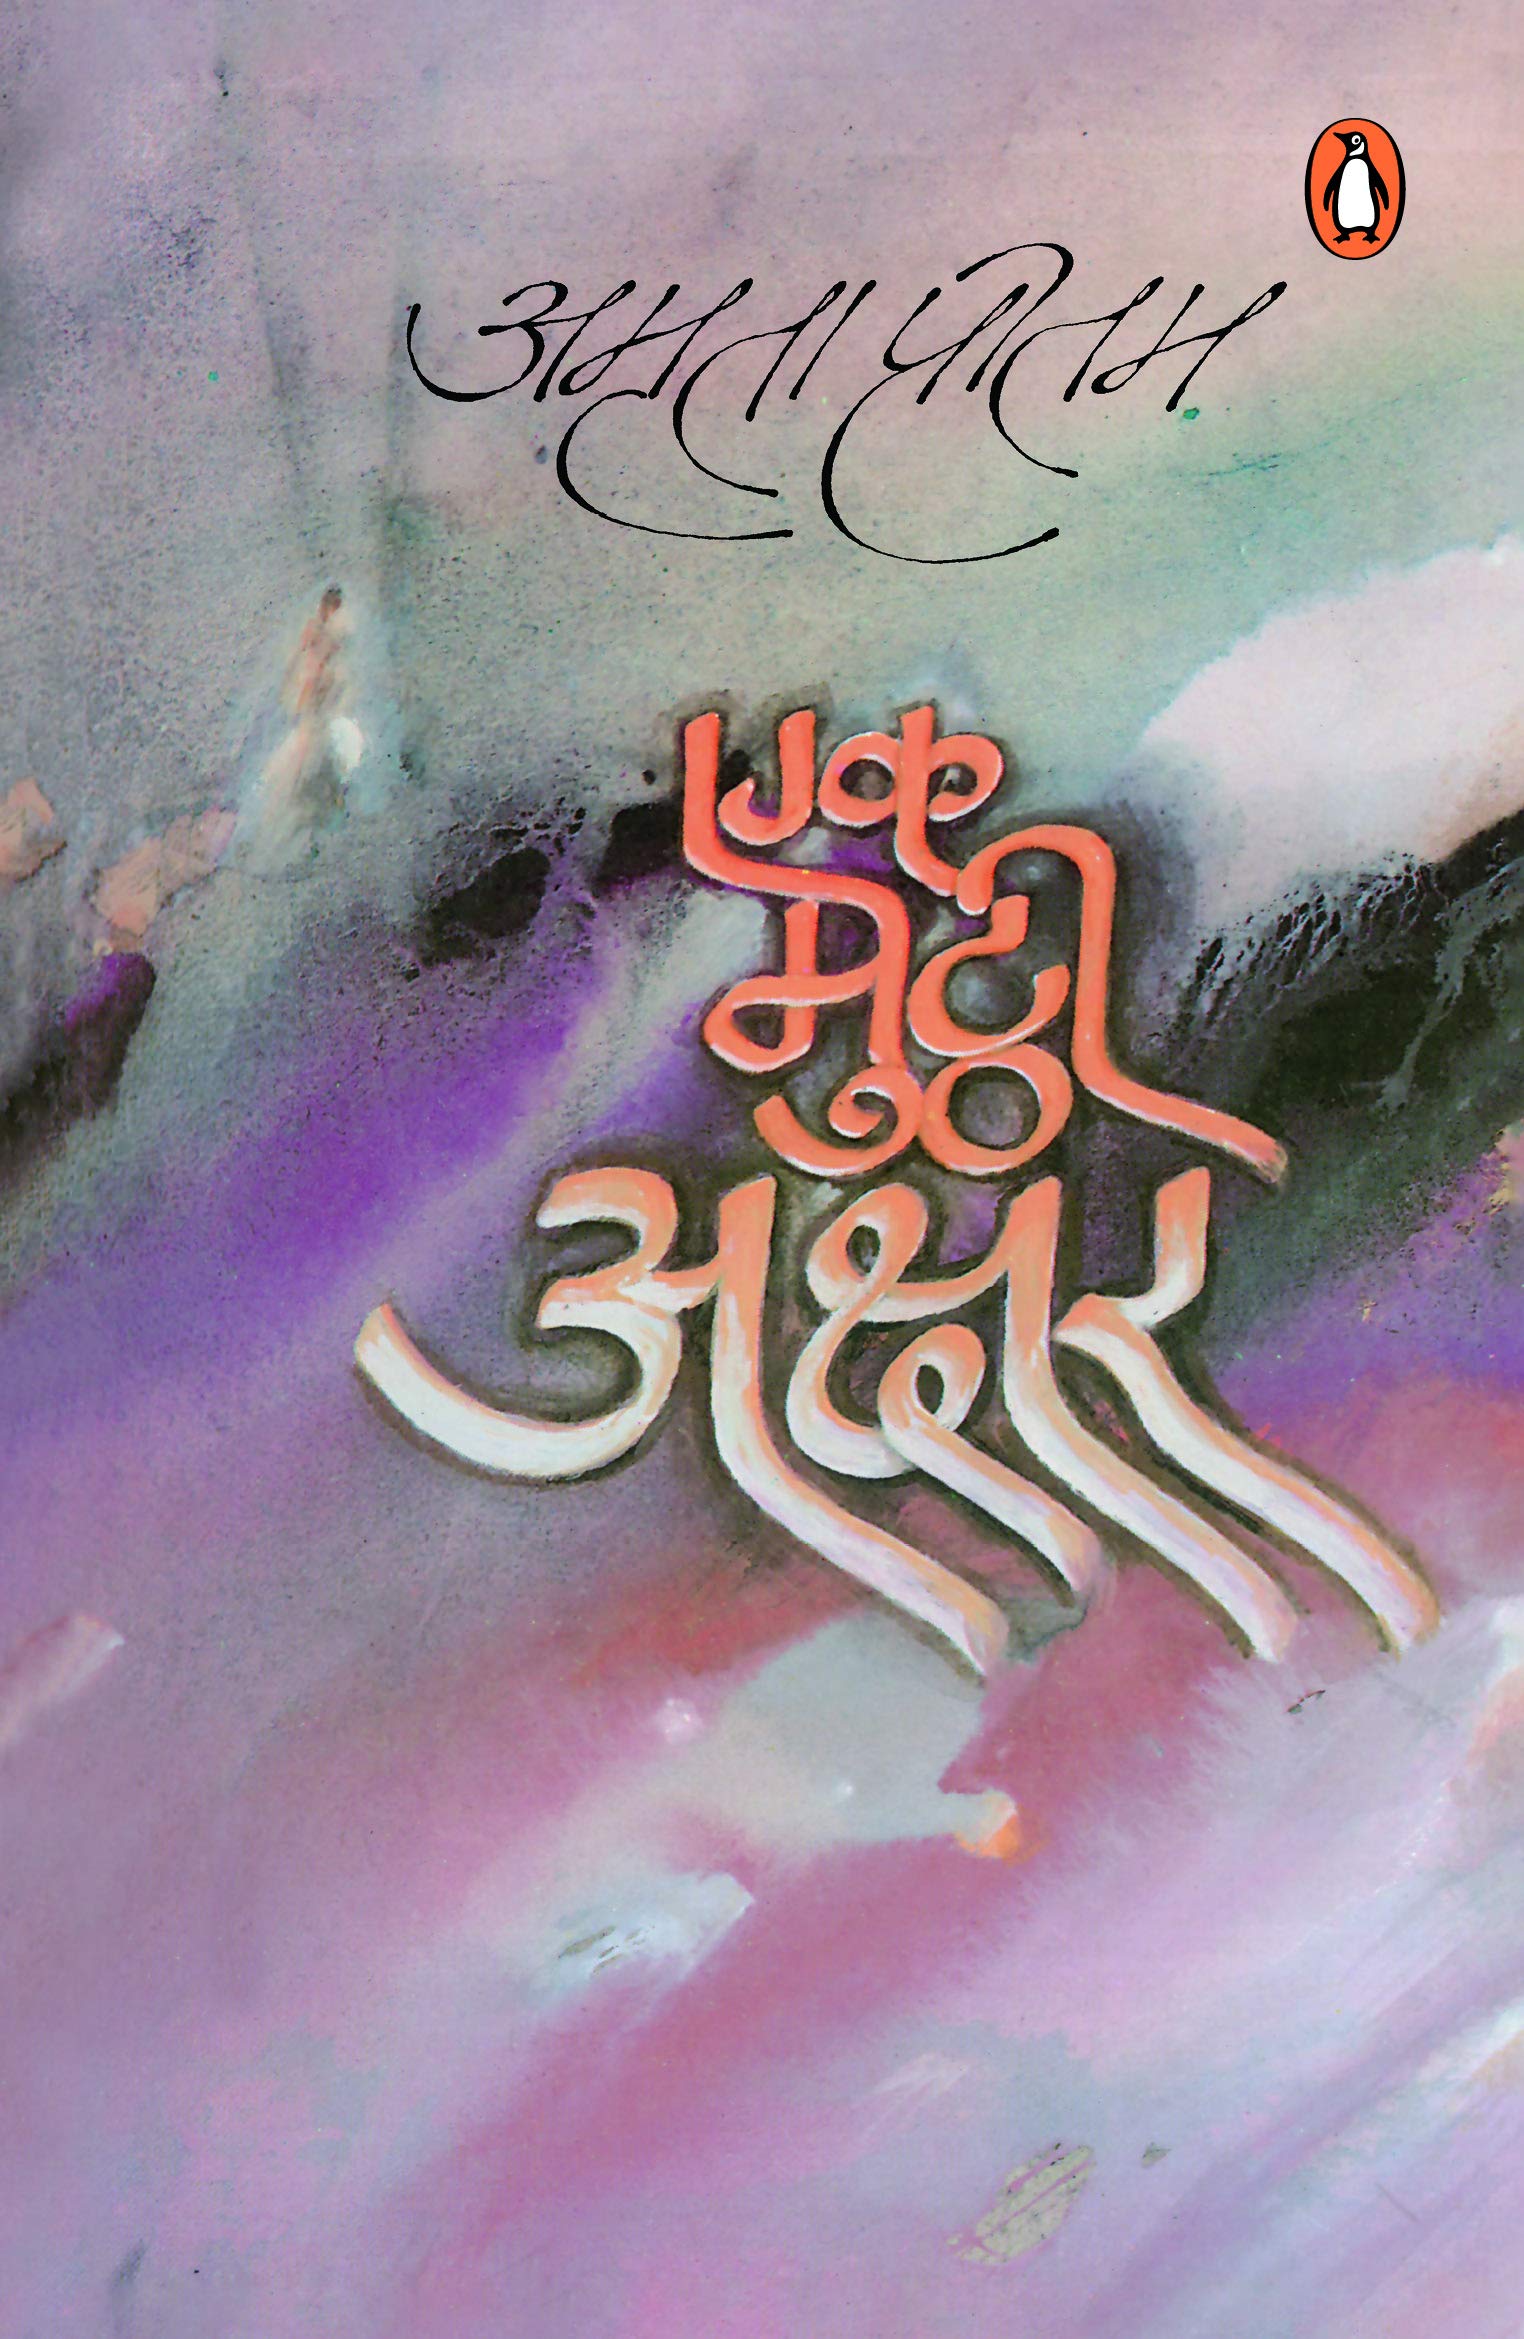 अमृता प्रीतम
एक
मुट्ठी
अक्षर